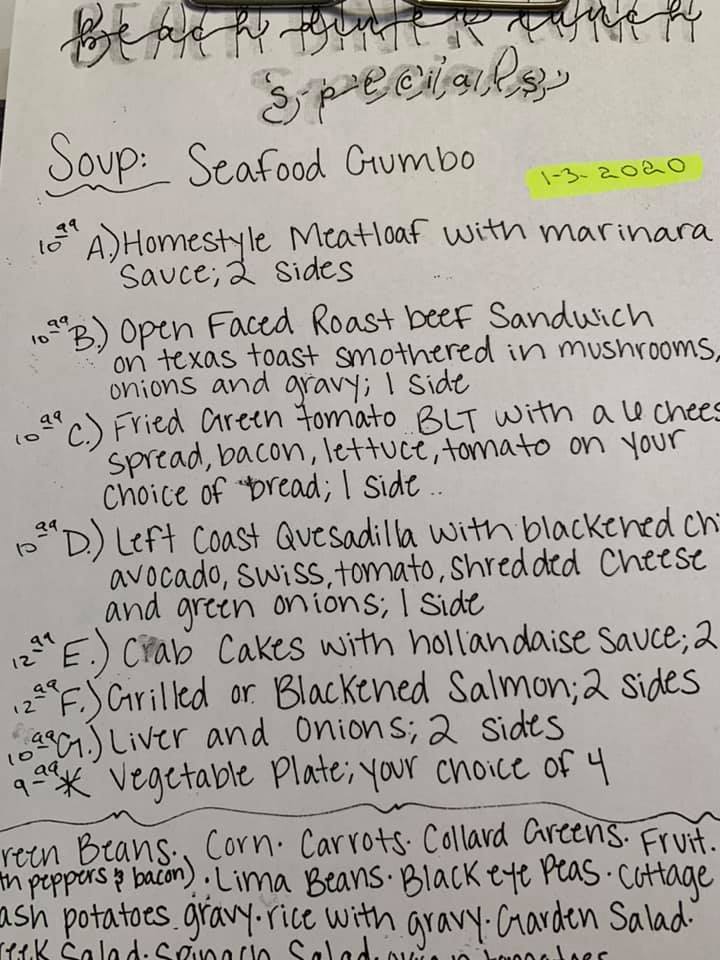 Beach Diner Lunch
Specials
Soup: Seafood Gumbo
1-3-2020
10 99 A.) Homestyle Meatloaf with marinara
Sauce; 2 sides
10 99 B.) Open Faced Roast beef Sandwich
on texas toast smothered in mushrooms,
onions and gravy; 1 side
10 99 C.) Fried Green tomato BLT with a
spread, bacon, lettuce, tomato on your
choice of bread; 1 side
10 99 D.) Left Coast Quesadilla with blackened
avocado, swiss, tomato, shredded cheese
and green onions; 1 side
12 99 E.) Crab Cakes with hollandaise sauce; 2
12 99 F.) Grilled or Blackened Salmon; 2 sides
10 99 G.) Liver and Onions; 2 sides
9 99 * Vegetable Plate; your choice of 4
reen Beans. Corn. Carrots. Collard Greens. Fruit.
th peppers & bacon). Lima Beans. Black eye Peas. Cottage
ash potatoes gravy. rice with gravy. Garden Salad.
reek Salad. Spinach Salad.